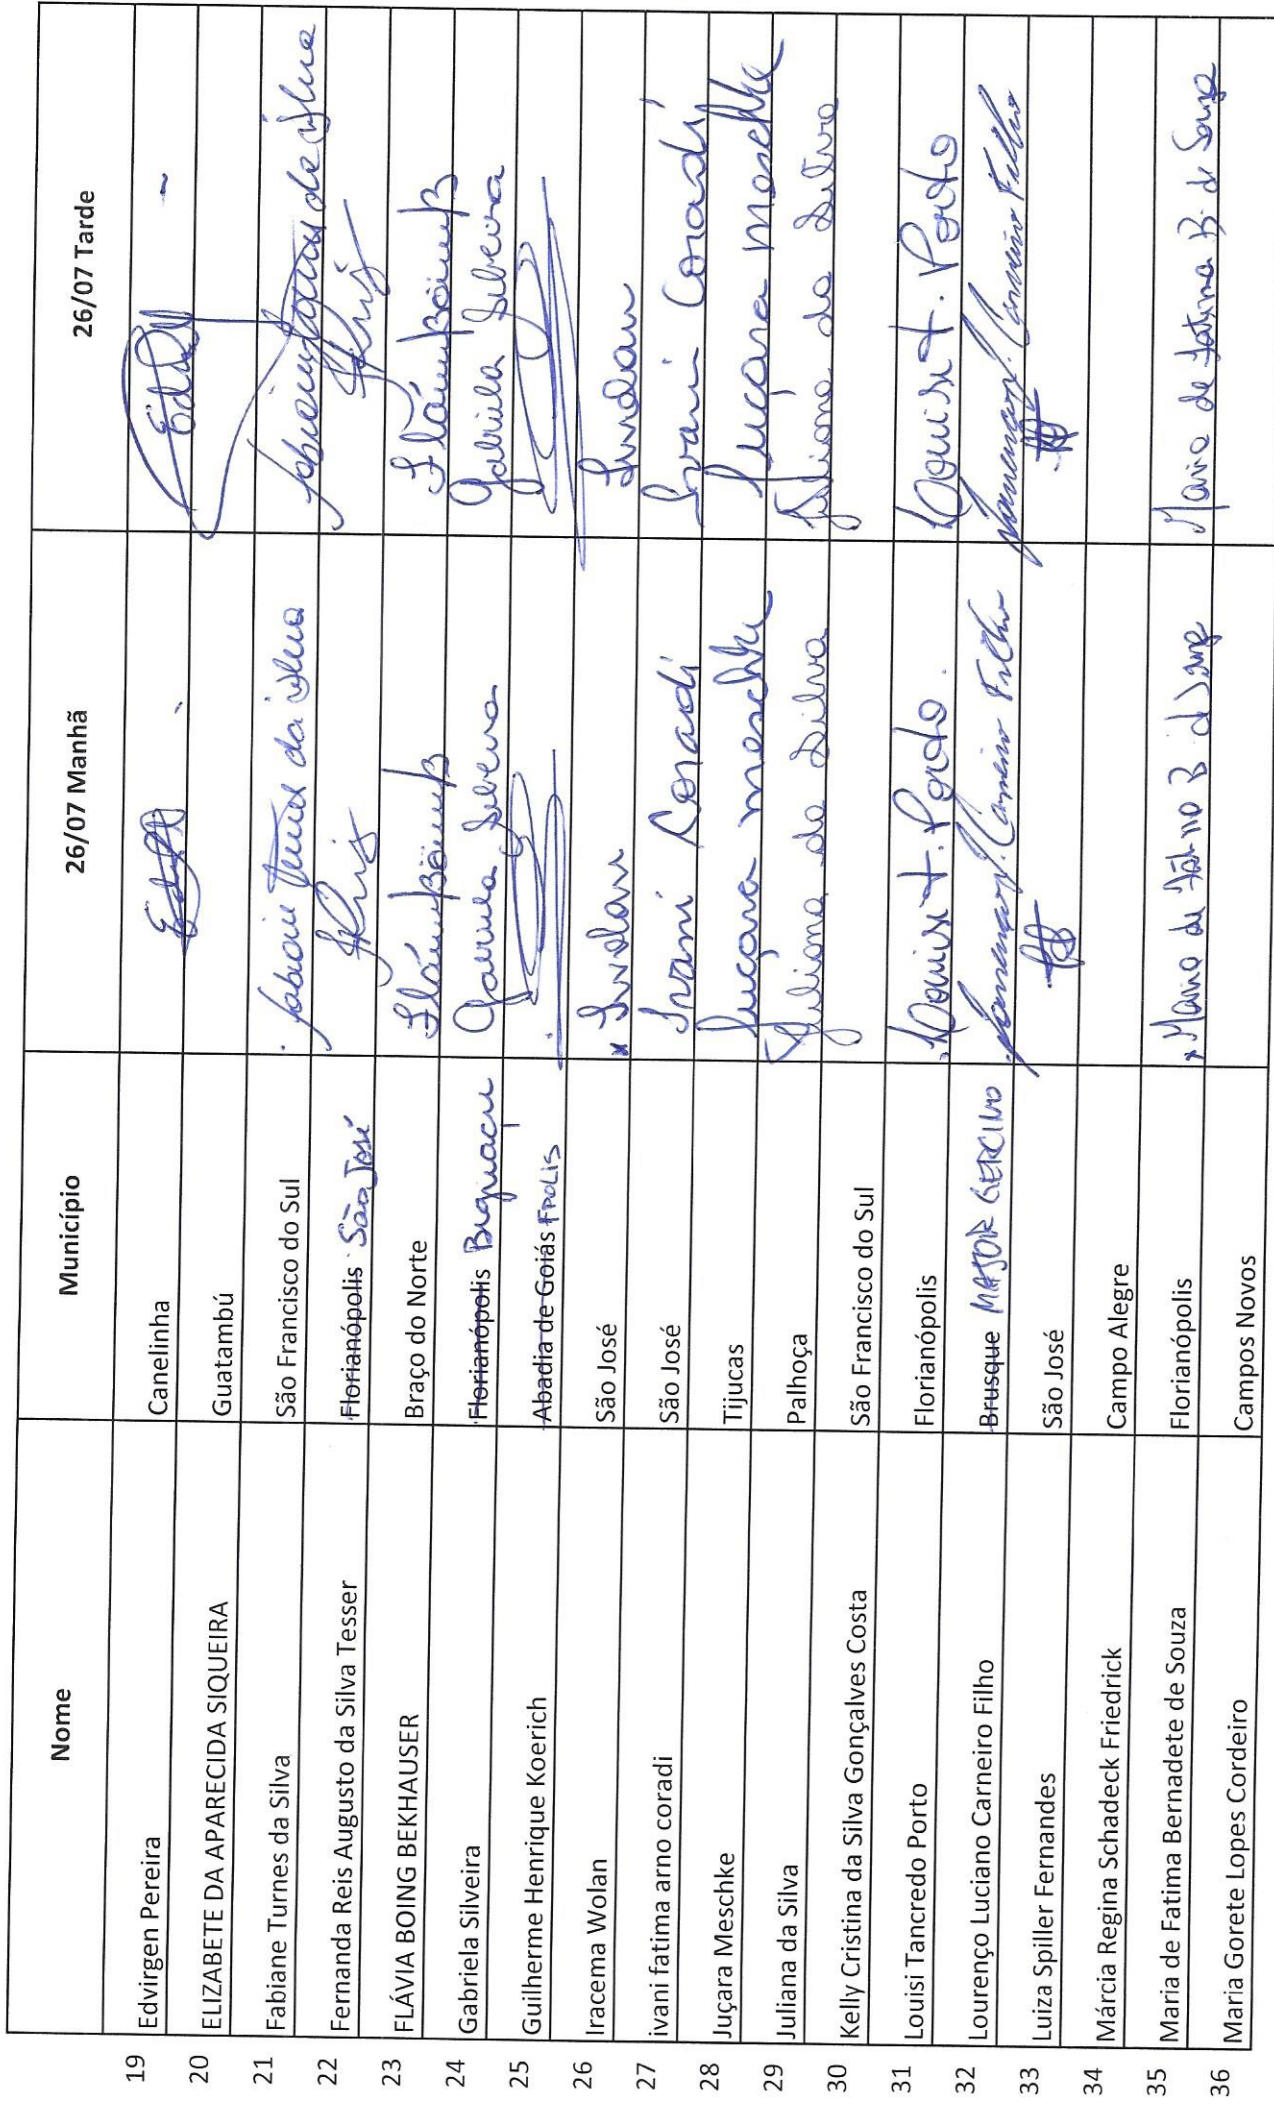 Nome Município 26/07 Manhã 26/07 Tarde
19 Edvirgen Pereira Canelinha
20 ELIZABETE DA APARECIDA SIQUEIRA Guatambú
21 Fabiane Turnes da Silva São Francisco do Sul Fabiane Turnes da Silva Fabiane Turnes da Silva
22 Fernanda Reis Augusto da Silva Tesser Florianópolis São José
23 FLÁVIA BOING BEKHAUSER Braço do Norte
24 Gabriela Silveira Florianópolis Biguaçu Gabriela Silveira Gabriela Silveira
25 Guilherme Henrique Koerich Abadia de Goiás FPOLIS
26 Iracema Wolan São José
27 ivani fatima arno coradi São José Ivani Coradi Ivani Coradi
28 Juçara Meschke Tijucas Juçara Meschke Juçara Meschke
29 Juliana da Silva Palhoça Juliana da Silva Juliana da Silva
30 Kelly Cristina da Silva Gonçalves Costa São Francisco do Sul
31 Louisi Tancredo Porto Florianópolis Louisi T. Porto Louisi T. Porto
32 Lourenço Luciano Carneiro Filho Brusque MAJOR GERCINO Lourenço L. Carneiro Filho Lourenço L. Carneiro Filho
33 Luiza Spiller Fernandes São José
34 Márcia Regina Schadeck Friedrick Campo Alegre
35 Maria de Fatima Bernadete de Souza Florianópolis Maria de Fátima B de Souza Maria de Fatima B. de Souza
36 Maria Gorete Lopes Cordeiro Campos Novos